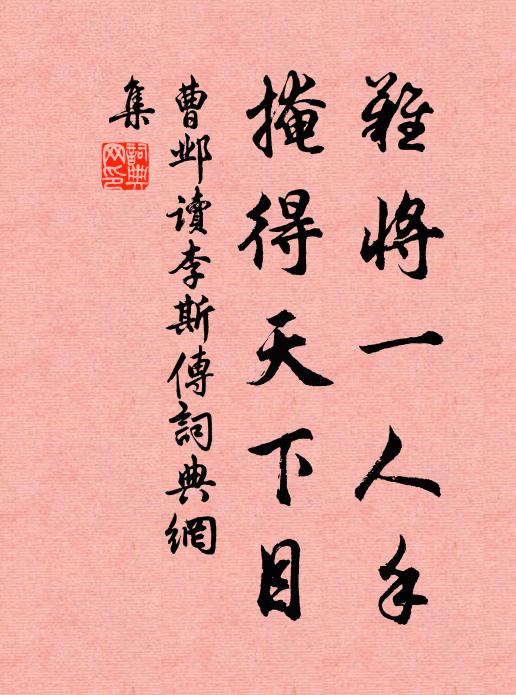 難將一人手
掩得天下目
曹鄴讀李斯傳詞典網
集
詞典
網印